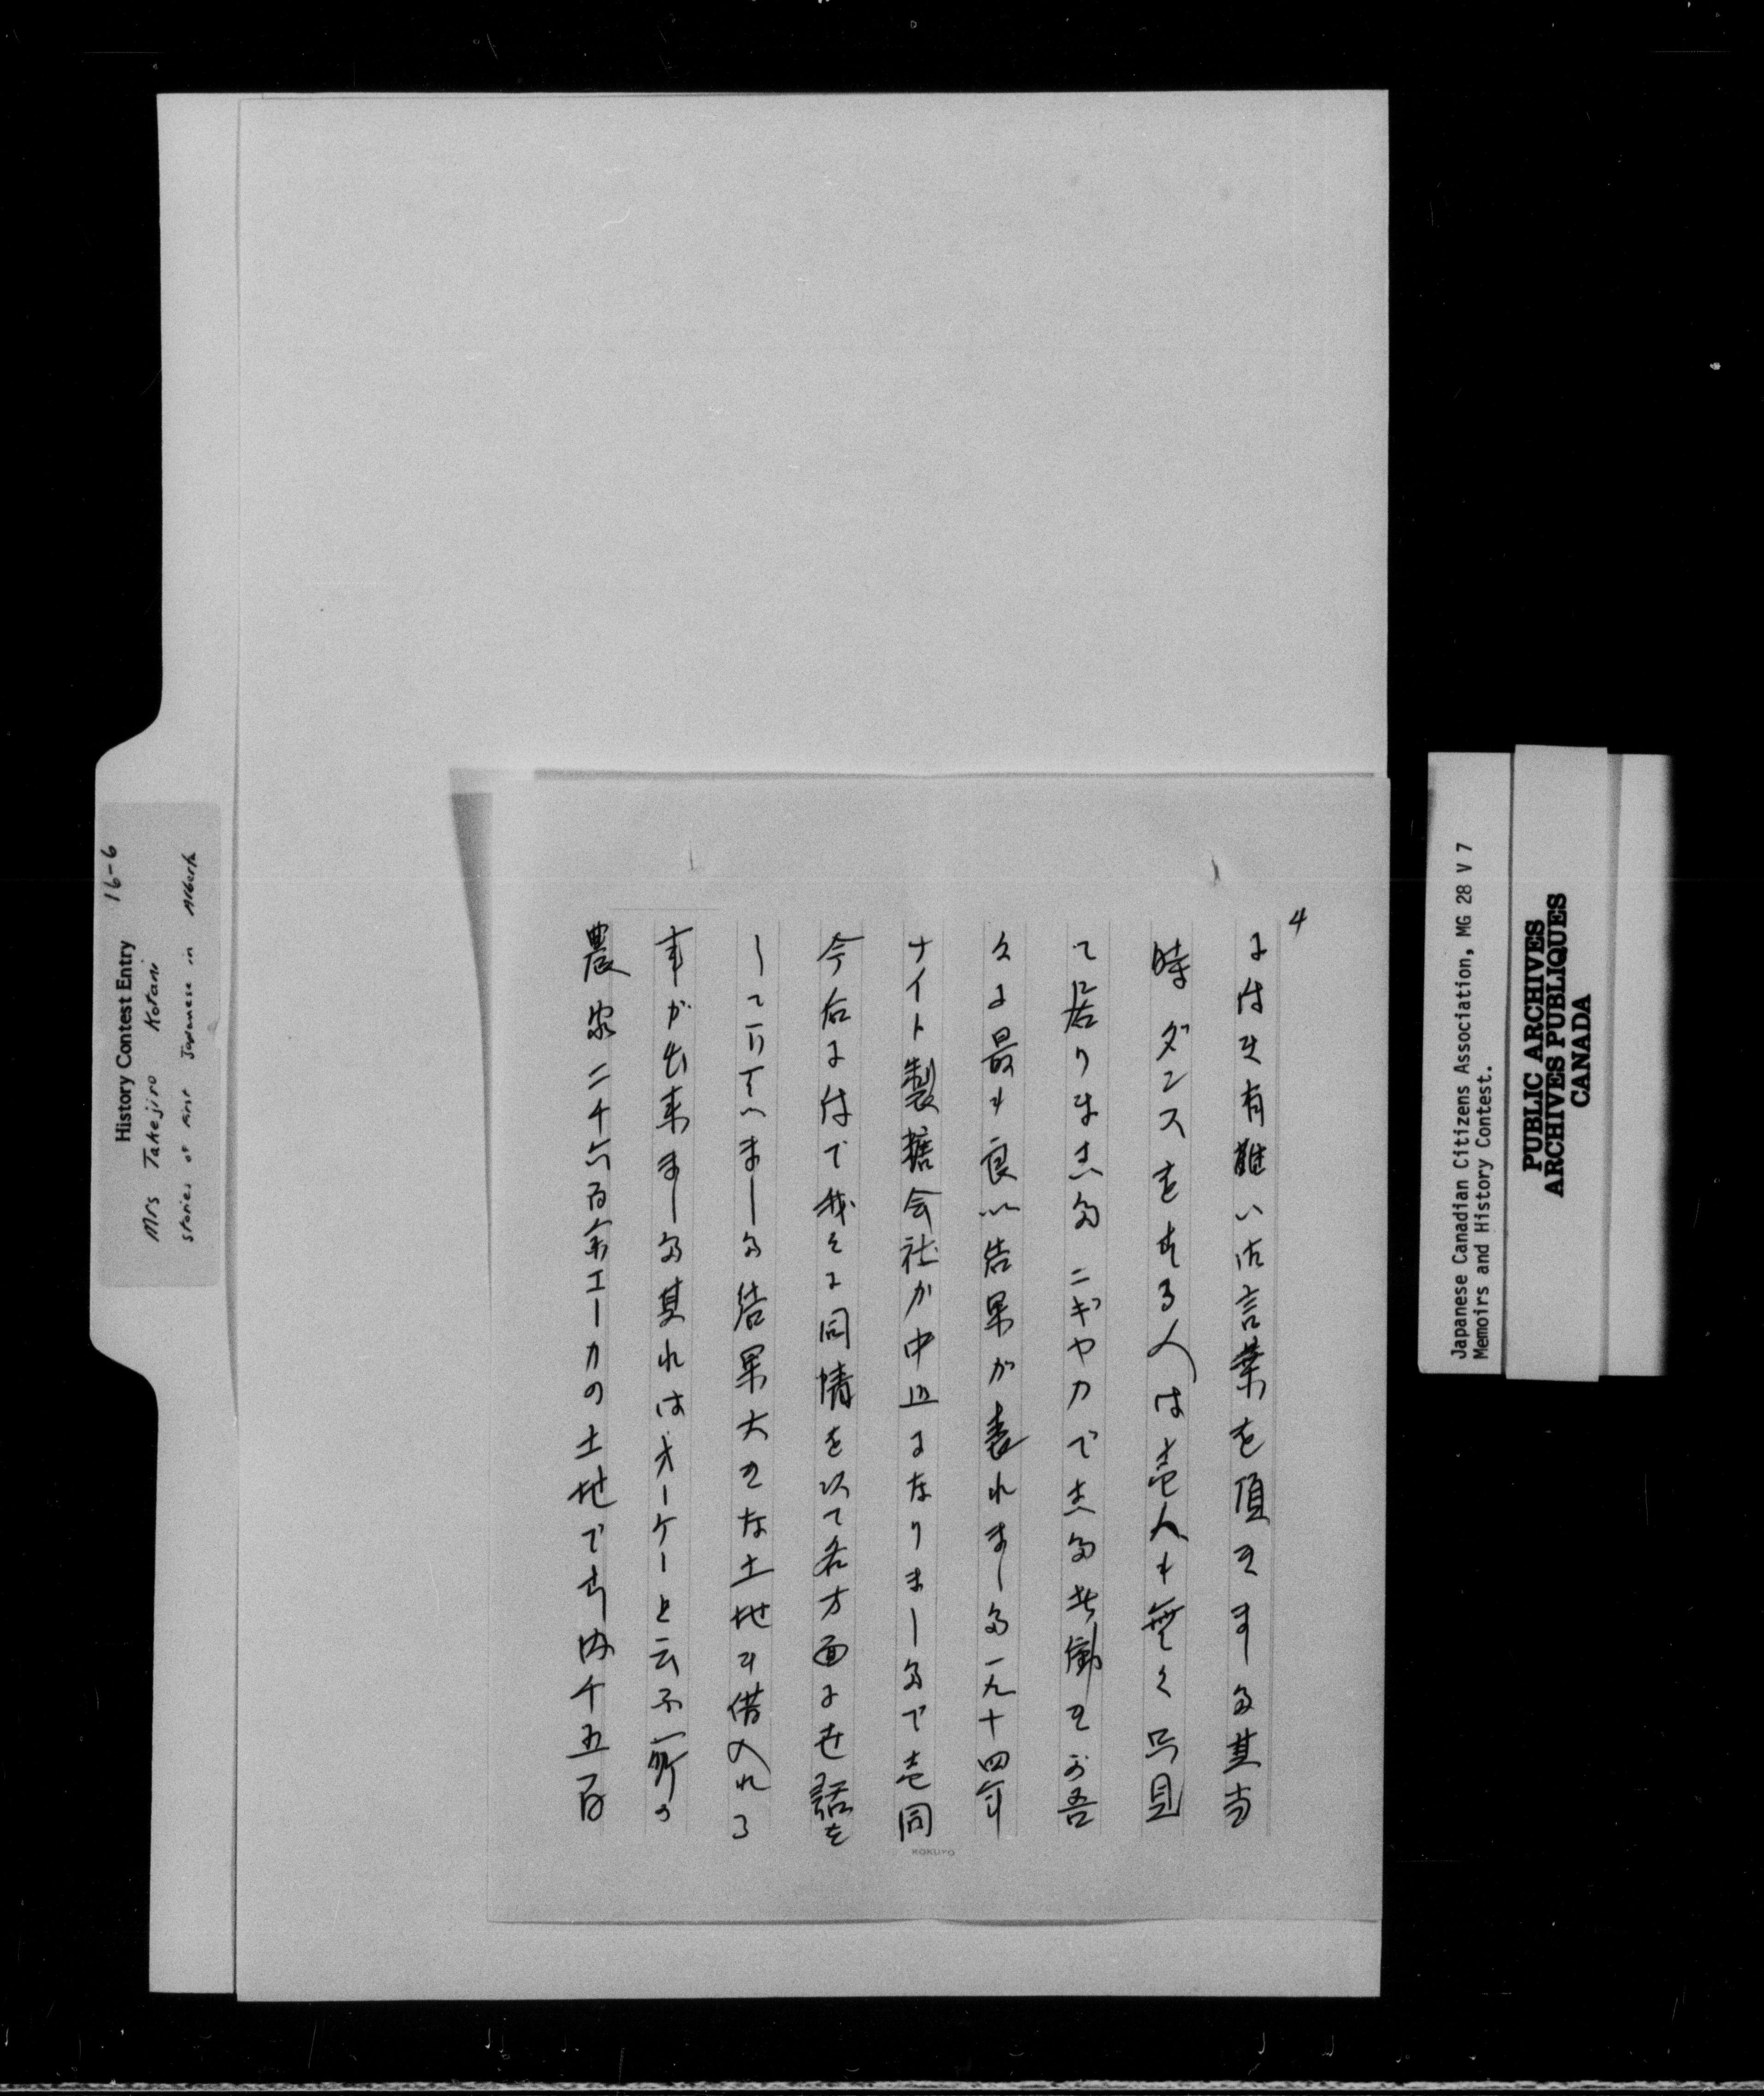 4
には又有難い御言葉を頂きました其当
時ダンスをする人は壱人も無く只見
て居りました ニギヤカでした 労働を
に最も良い結果が表れました一九十四年
ナイト製糖会社が中止になりましたで壱同
今后には で我々に同情を以て各方面に世話を
して下さいました結果大きな土地を借入れる
事が出来ました其れはオーケーと云ふ所の
農家二千六百余エーカの土地です内千五百
KOKUYO
History Contest Entry 16-6
Mrs Takejiro Kotani
stories of First Japanese in Alberta
Japanese Canadian Citizens Association, MG 28 V 7
Memoirs and History Contest.
PUBLIC ARCHIVES
ARCHIVES PUBLIQUES
CANADA